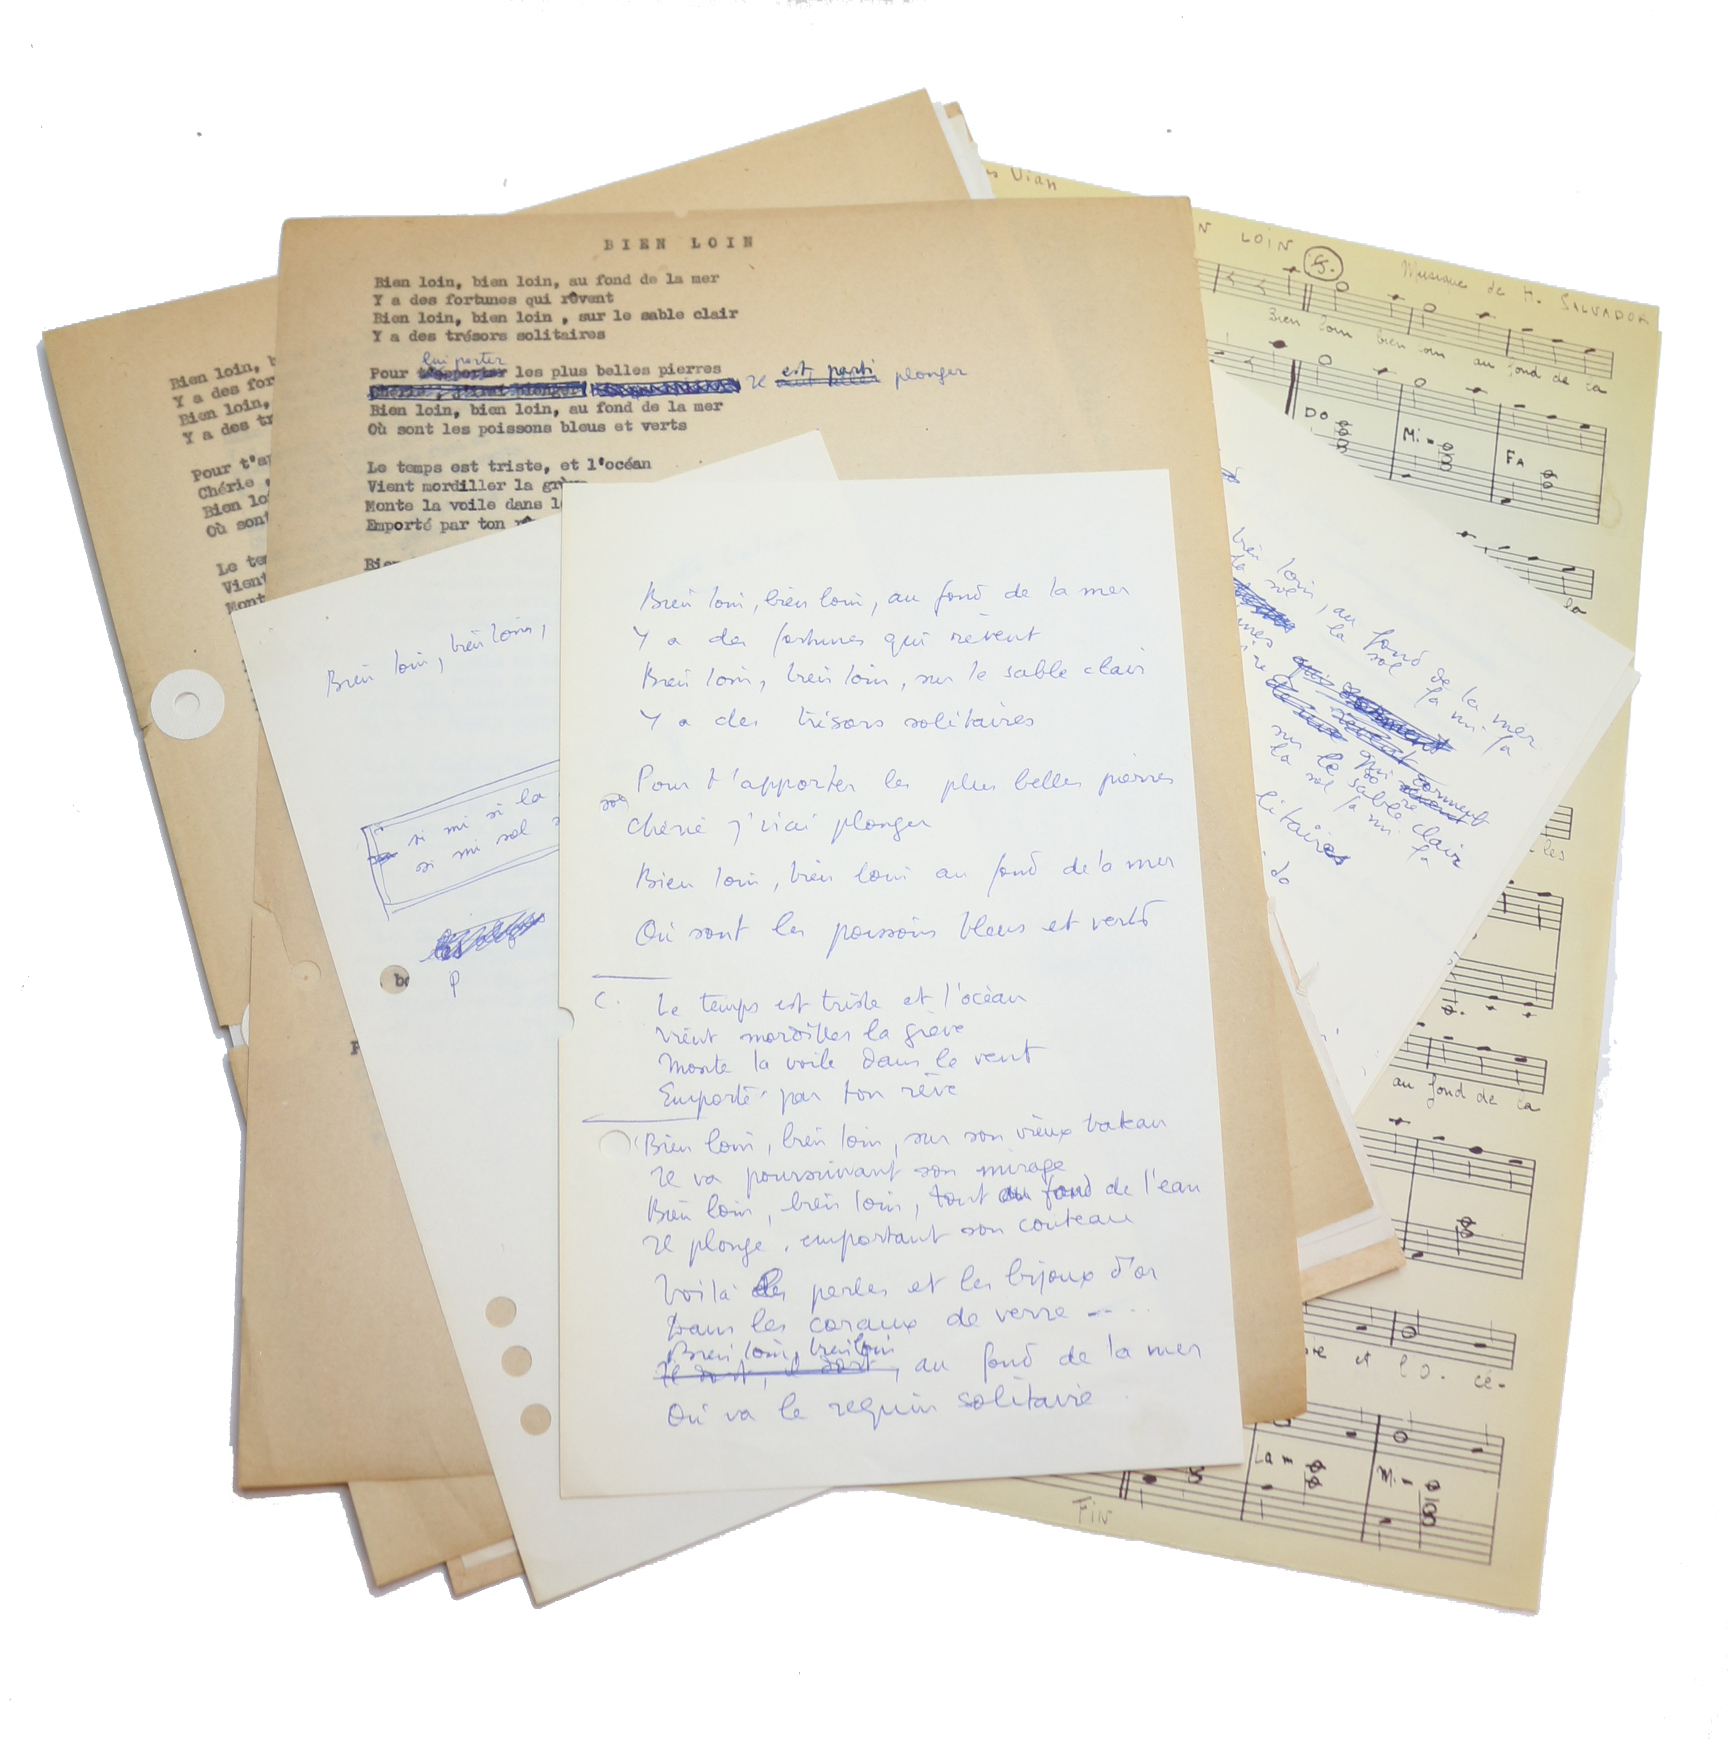 Vian
LOIN
Musique de H. SALVADOR
Bien loin bien loin au fond de la
DO
Mi-
FA
la
les
au fond de la
et l'o- cé-
Lam
Mi-
FIN
BIEN LOIN
Bien loin, bien loin, au fond de la mer
Y a des fortunes qui rêvent
Bien loin, bien loin , sur le sable clair
Y a des trésors solitaires
lui porter
Pour t'apporter les plus belles pierres
Chérie, j'irai plonger Il est parti plonger
Bien loin, bien loin, au fond de la mer
Où sont les poissons bleus et verts
Le temps est triste, et l'océan
Vient mordiller la grève
Monte la voile dans l
Emporté par ton
Bien
Bien loin, b
Y a des for
Bien loin,
Y a des tr
Pour t'ap
Chérie ,
Bien loi
Où sont
Le te
Vient
Mont
Bien loin, bien loin,
si mi si la
si mi sol
bien loin, au fond de la mer
la sol fa mi fa
qui dorment
sur le sable clair
la sol fa mi fa
litaires
do
Bien loin, bien loin, au fond de la mer
Y a des fortunes qui rêvent
Bien loin, bien loin, sur le sable clair
Y a des trésors solitaires
Pour t'apporter les plus belles pierres
Chérie j'irai plonger
Bien loin, bien loin au fond de la mer
Où sont les poissons bleus et verts
C. Le temps est triste et l'océan
Vient mordiller la grève
Monte la voile dans le vent
Emporté par ton rêve
Bien loin, bien loin, sur son vieux bateau
Il va poursuivant son mirage
Bien loin, bien loin, tout au fond de l'eau
Il plonge, emportant son couteau
Voilà les perles et les bijoux d'or
Dans les coraux de verre
Bien loin, bien loin
Il dort, il dort, au fond de la mer
Où va le requin solitaire